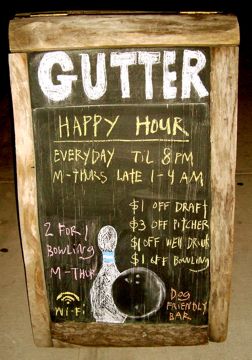 GUTTER
HAPPY HOUR
EVERYDAY TIL 8 PM
M-THURS LATE 1-4 AM
$1 OFF DRAFT
$3 OFF PITCHER
$1 OFF WELL DRINK
$1 OFF BOWLING
2 FOR 1
BOWLING
M-THUR
WI-FI
DOG
FRIENDLY
BAR